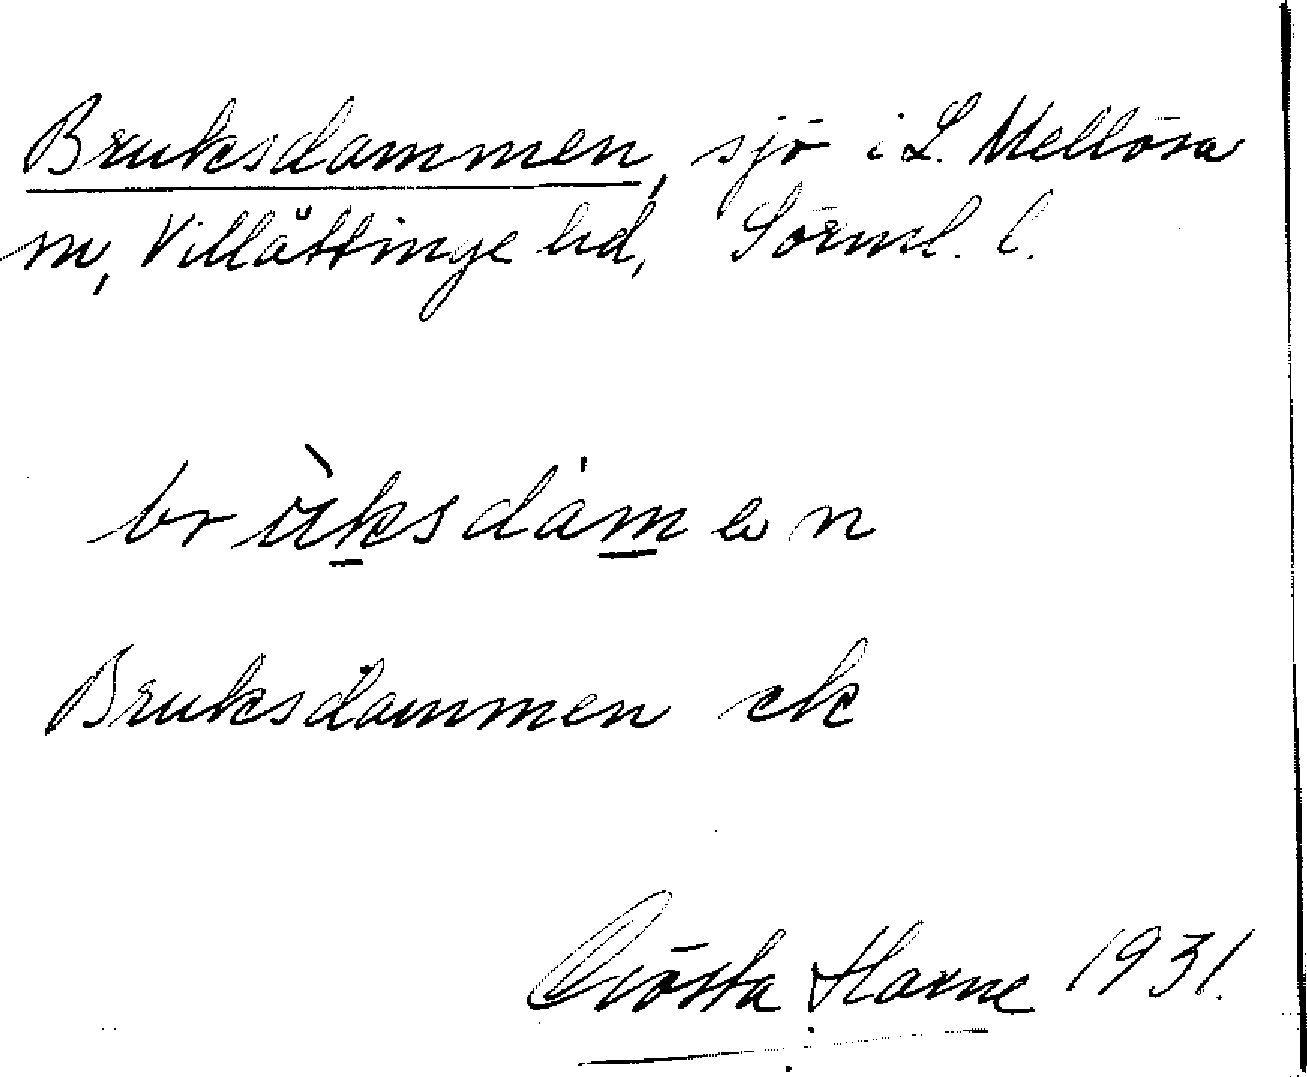 Bruksdammen, sjö i L. Mellösa
sn, Villåttinge hd, Sörml. l.
brùksdámən
Bruksdammen ek
Gösta Harne 1931.